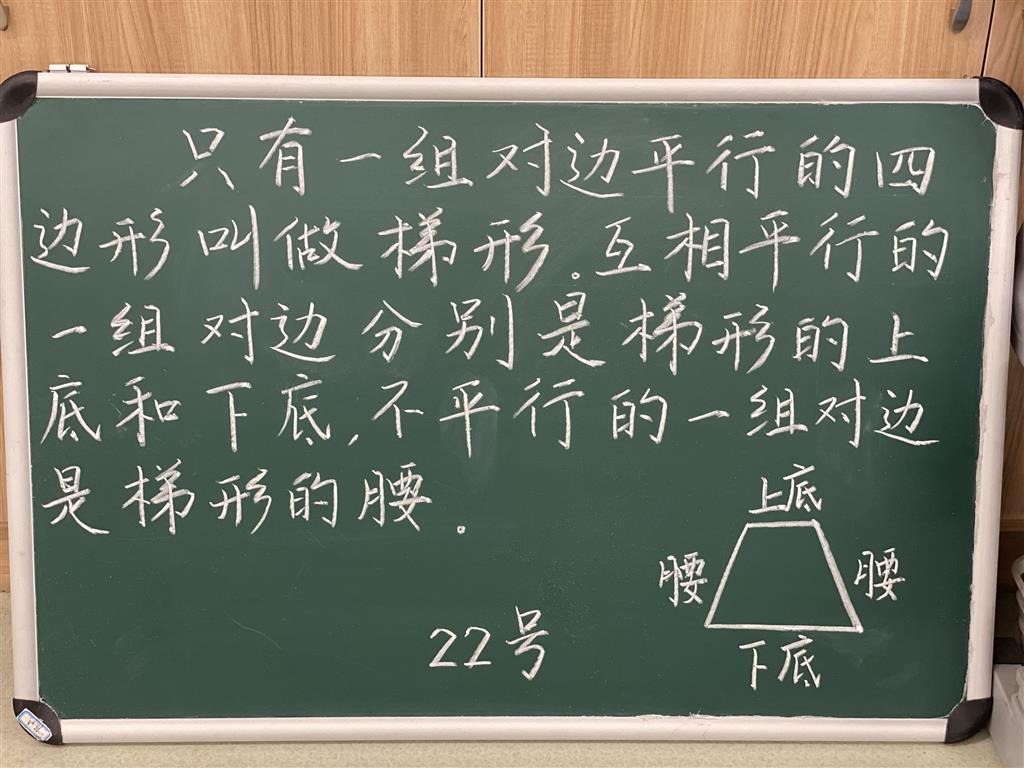 只有一组对边平行的四
边形叫做梯形。互相平行的
一组对边分别是梯形的上
底和下底,不平行的一组对边
是梯形的腰.
上底
腰 腰
下底
22号